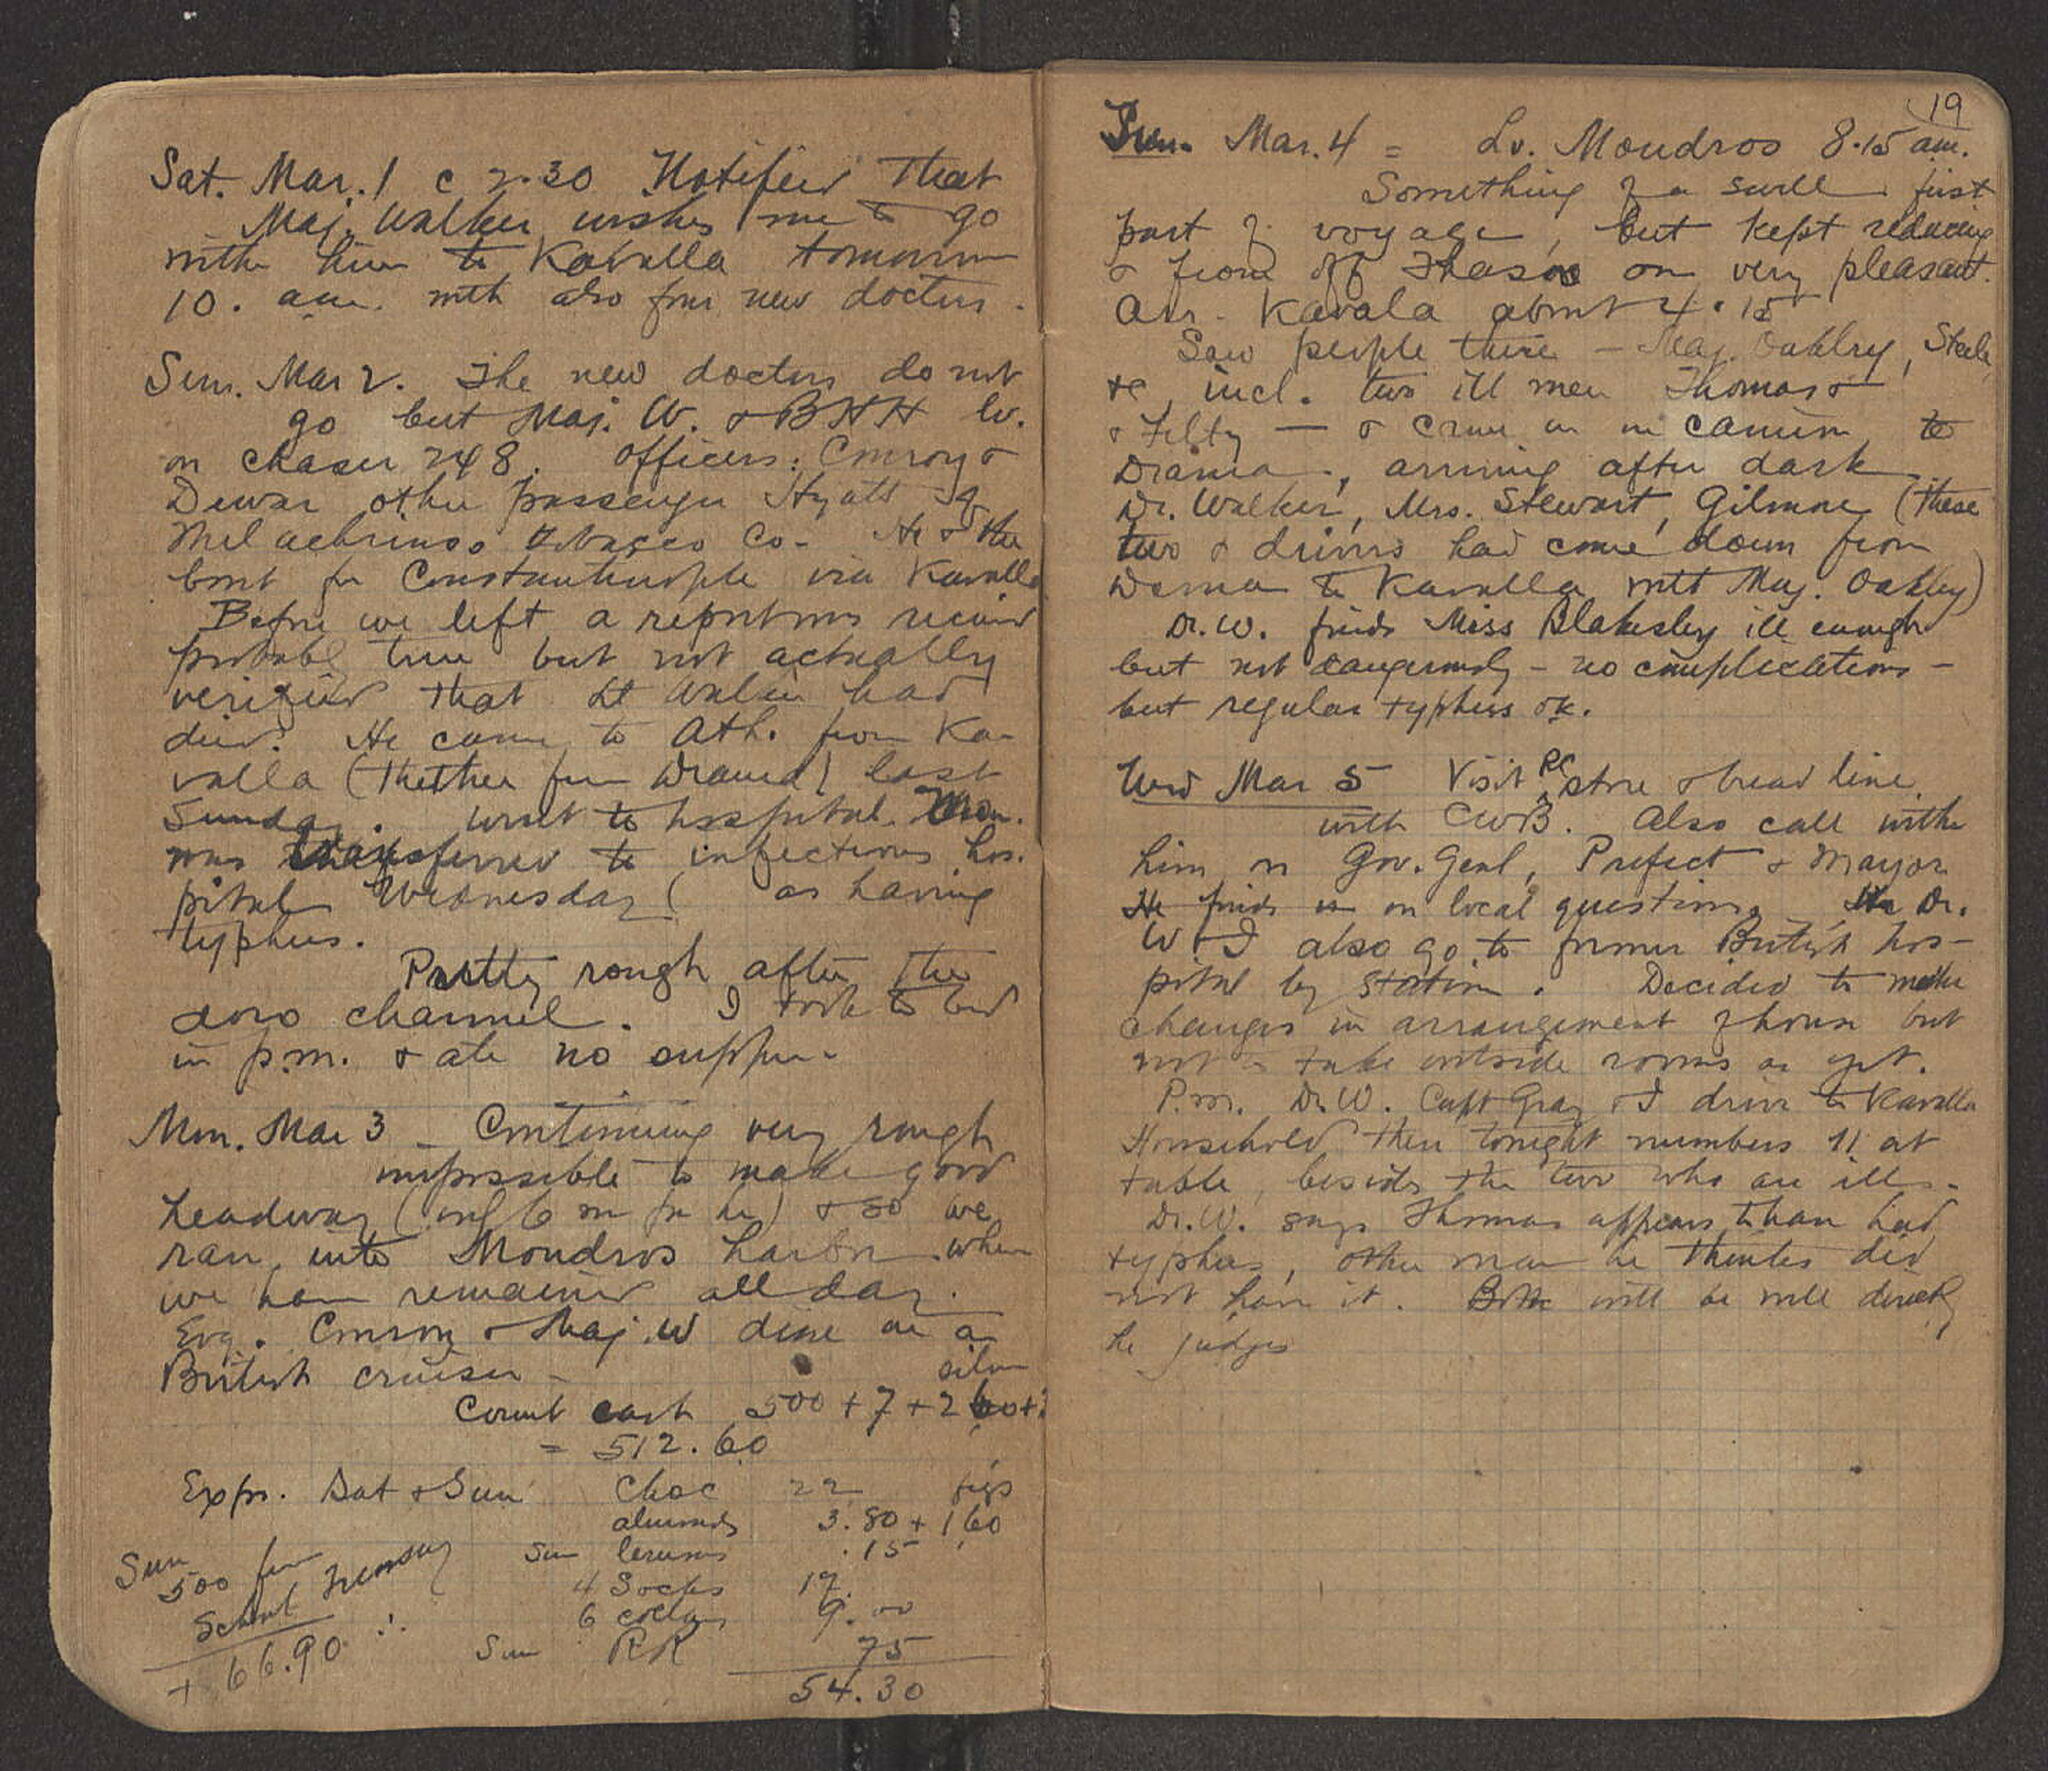 Sat. Mar. 1 c 2.30 Notified that
Maj. Walker wishes me to go
with him to Kavalla tomorrow
10. a.m. with also four new doctors.
Sun. Mar 2. The new doctors do not
go but Maj. W. & BHH lv.
on chaser 248. Officers: Conroy &
Dewar other passenger Hyatt of
Melachrinos tobacco Co. He & the
boat for Constantinople via Kavalla
Before we left a report was received
probably true but not actually
verified that Lt had
died. He came to Ath. from Ka-
valla (thether from Drama) last
Sunday. Went to hospital Mon.
was transferred to infectious hos-
pital Wednesday ( as having
typhus.
Pretty rough after the
doro channel. I took to bed
in p.m. & ate no supper.
Mon. Mar 3 - Continuing very rough
impossible to make good
headway (only 6 m per hr) & so we
ran into Moudros harbor where
we have remained all day.
Evg. & Maj. W dine on a
British cruiser -
silver
Count cash 500 + 7 + 2.60 +
= 512.60
Exps. Sat & Sun Choc 22 figs
almonds 3.80 + 1.60
Sun lemons .15
4 Socks 17.
6 collars 9.00
Sun RR 75
54.30
Sun
500 from
School Treasury
+ 66.90 ∴
19
Mar. 4 = Lv. Moudros 8.15 a.m.
Something of a swell first
part of voyage, but kept reducing
& from off Thasos on very pleasant.
Arr. Kavala about 4.15
Saw people there - Maj. Oakley, Steele
&c, incl. two ill men Thomas &
& Felty - & came on in camion to
Drama, arriving after dark
Dr. Walker, Mrs. Stewart, Gilmore (these
two & drivers had come down from
Drama to Kavalla with Maj. Oakley)
Dr. W. finds Miss Blakesley ill enough
but not dangerously - no complications -
but regular typhus ok.
Wed Mar 5 Visit RC store & bread line
with CWB. Also call with
him on Gov. Genl, Prefect & Mayor
He on local questions. Dr.
W & I also go to former British hos-
pital by station. Decided to make
changes in arrangement of house but
not to take outside rooms as yet.
P.m. Dr. W. Capt Gray & I drive to Kavalla
Household then tonight numbers 11 at
table, besides the two who are ill.
Dr. W. says Thomas appears to have had
typhus, other man he thinks did
not have it. Both will be well directly
he judges